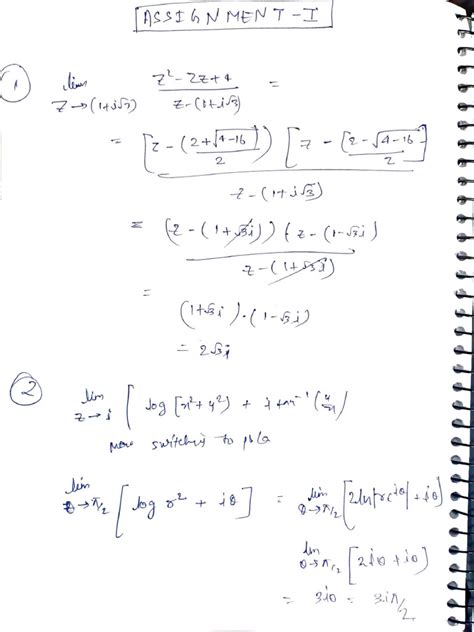 ASSIGNMENT - I
1
lim z→(1+i√3) (z²-2z+4)/(z-(1+i√3)) =
= [z-((2+√(4-16))/2)] [z-((2-√(4-16))/2)] / (z-(1+i√3))
= (z-(1+√3i)) (z-(1-√3i)) / (z-(1+√3i))
=
(1+√3i).(1-√3i)
= 2√3i
2
lim z→i [log[x²+y²) + i tan⁻¹(y/x)
switching to
lim θ→π/2 [log r² + iθ] = lim θ→π/2 [2ln|re^{iθ}| + iθ]
lim θ→π/2 [2iθ + iθ]
= 3iθ = 3iπ/2